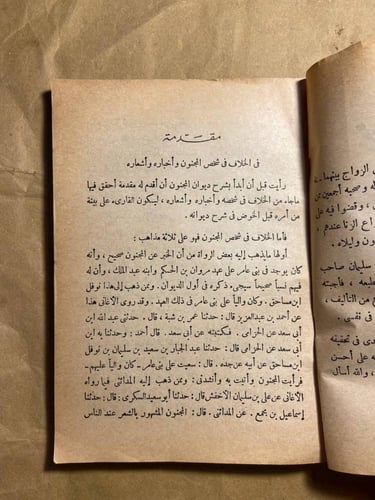 مقدمة
فى الخلاف فى شخص المجنون وأخباره وأشعاره
رأيت قبل أن أبدأ بشرح ديوان المجنون أن أقدم له مقدمة أحقق فيها
ماجاء من الخلاف فى شخصه وأخباره وأشعاره ، ليكون القارىء على بينة
من أمره قبل الخوض فى شرح ديوانه .
فأما الخلاف فى شخص المجنون فهو على ثلاثة مذاهب :
أولها مايذهب إليه بعض الرواة من أن الخبر عن المجنون صحيح ، وأنه
كان يوجد فى بنى عامر على عهد مروان بن الحكم وابنه عبد الملك ، وأن له
فيهم نسباً صحيحاً سيجىء ذكره فى أول الديوان . وممن ذهب إلى هذا نوفل
ابن مساحق . وكان والياً على بنى عامر فى ذلك العهد . وقد روى الأغانى هذا
عن أحمد بن عبد العزيز قال : حدثنا عمر بن شبة ، قال . حدثنى عبد الله ابن
أبى سعد عن الحزامى . فكتبته عن أبى سعد . قال أحمد : وحدثنا به ابن
أبى سعد عن الحزامى قال : حدثنا عبد الجبار بن سعيد بن سليمان بن نوفل
ابن مساحق عن أبيه عن جده . قال : سعيت على بنى عامر ــ كان والياً عليهم ــ
فرأيت المجنون وأتيت به وأنشدنى : وممن ذهب إليه المدائنى فيما رواه
الأغانى عن على بن سليمان الأخفش قال : حدثنا أبو سعيد السكرى : قال : حدثنا
إسماعيل بن مجمع . عن المدائنى . قال : المجنون المشهور بالشعر عند الناس
الزواج بينهما .
وصحبه أجمعين
، وقضوا فيه على
سليمان صاحب
فأجبته
من التأليف ،
فى نفسى .
فى تحقيقه
على أحسن
، والله أسأل